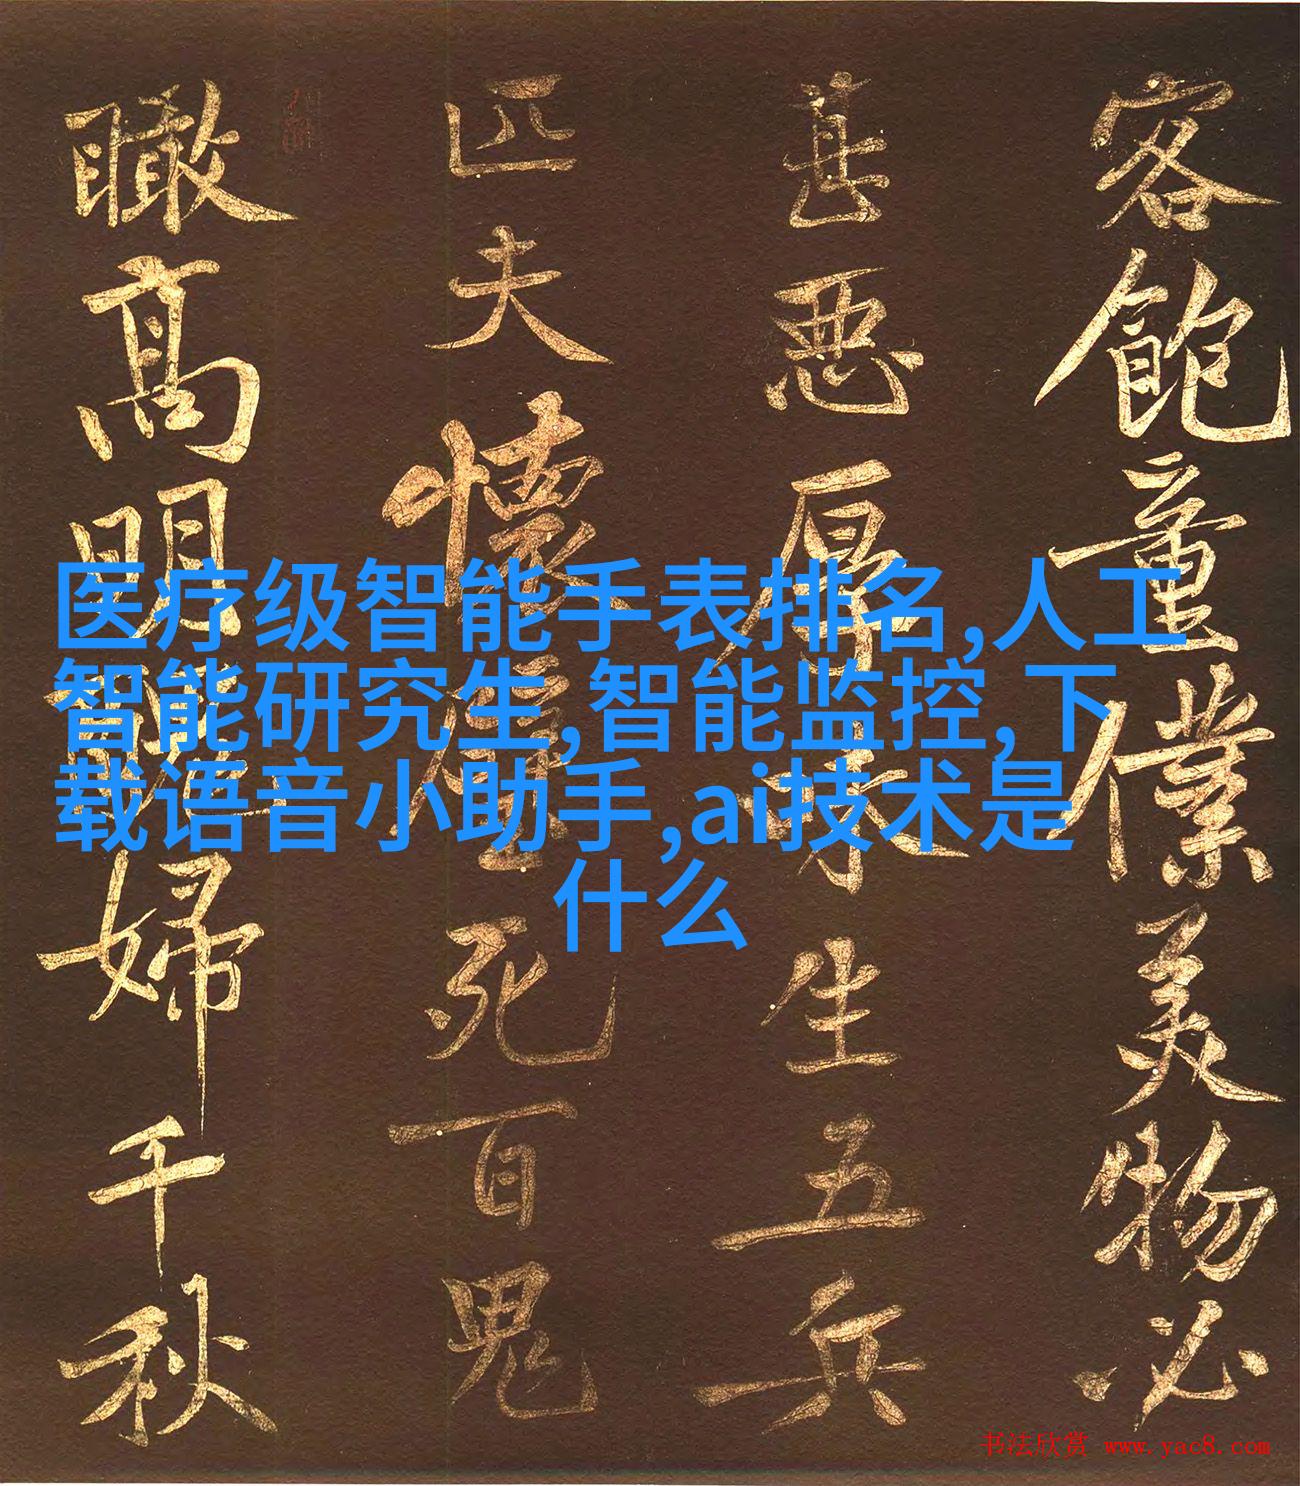 客飽童僕美物必
甚惡厚味生五兵
匹夫懷璧死百鬼
瞰高明
婦千秋
医疗级智能手表排名,人工
智能研究生,智能监控,下
载语音小助手,ai技术是
什么
书法欣赏 www.yac8.com